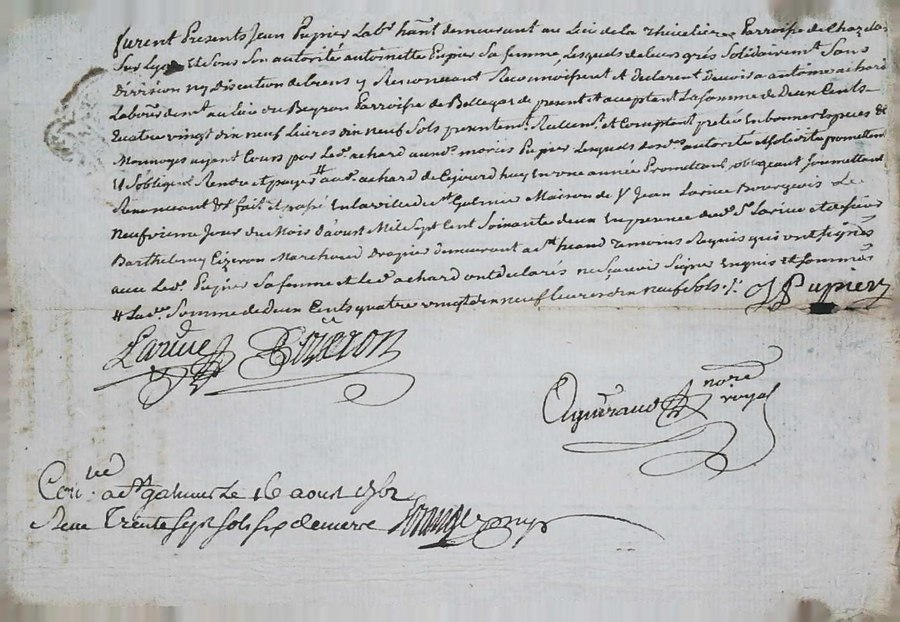 furent Presents Jean Pupier Labr. hant demeurant au Lieu de la Thueliere Parroisse de Chazelle
Sur Lyon Et sous son autorité antoinette Pupier sa femme, Lesquels de leurs grés Solidairemt. Sans
division ny discution de biens y Renonceant Reconnoissent et declarent devoir a antoine achard
Labour demt. au lieu du Beyron Parroisse de Bellegarde present et acceptant La somme de Deux Cents
quatre vingt dix neuf Livres dix neuf Sols presentemt. et Comptant prêtée En bonnes Espèces de
Monnoyes ayant Cours par Led. achard aud. mariés Pupier Lesquels de lad. autorité et solidité promettent
Et s'obligent Rendre et payer # aud. achard de Cejourd'huy En une année Promettant, obligeant Soumettant
Renonceant &a fait et passé En la ville de St Galmier Maison de Sr. Jean Larive Bourgeois Le
Neufvieme Jour du Mois d'aoust Mil Sept Cent Soixante deux En presence dud. Sr. Larive et de sieur
Barthelemy Eizeron Marchand Drapier demeurant a St heand Temoins Requis qui ont signés
avec Led. Pupier Sa femme et led. achard ont declarés ne sçavoir Signer Enquis et sommés
# Lad. Somme de deux Cents quatre vingt dix neuf Livres dix neuf Sols ./.
J Pupier
Larive Eizeron
nore
royal
Con.lé a St. galmier Le 16 aoust 1762
Reçu Trente Sept Sols six deniers